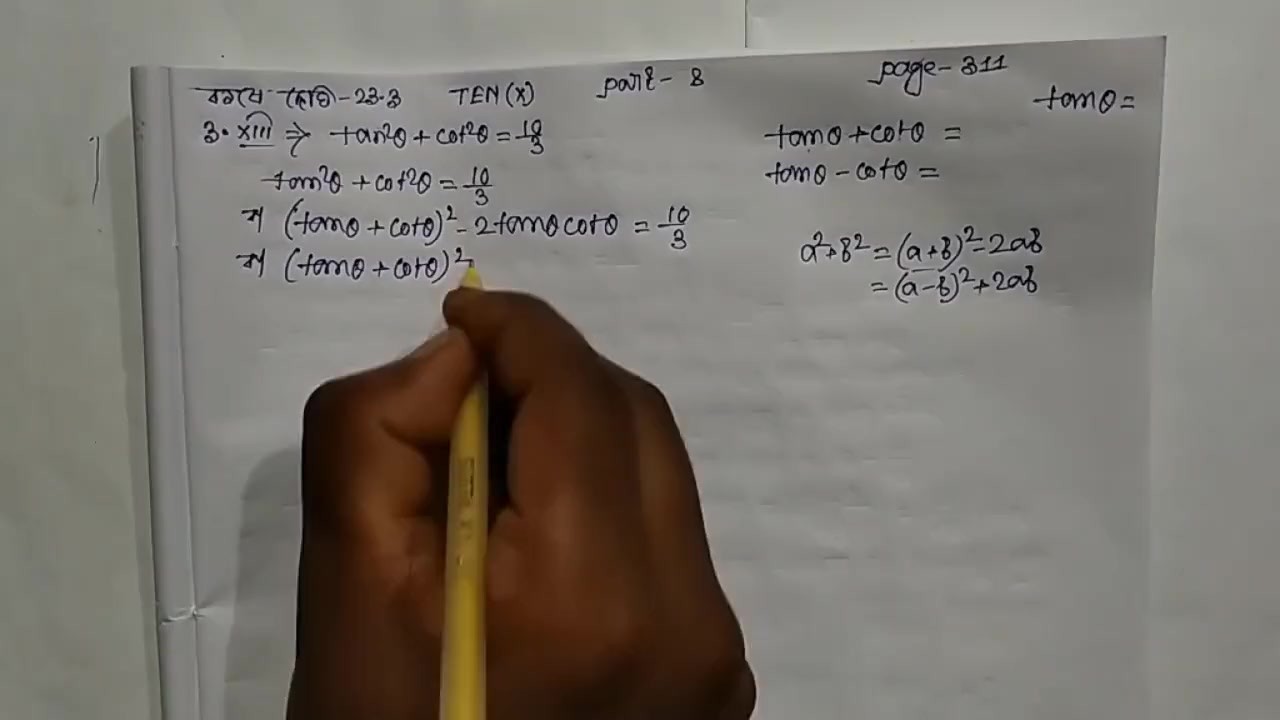 কষে দেখি-23.3 TEN (X) part- 8 page-311
3. XIII ⇒ tan²θ + cot²θ = 10/3
tan²θ + cot²θ = 10/3
বা (tanθ + cotθ)² - 2tanθcotθ = 10/3
বা (tanθ + cotθ)²
tanθ =
tanθ + cotθ =
tanθ - cotθ =
a²+b² = (a+b)²-2ab
= (a-b)²+2ab